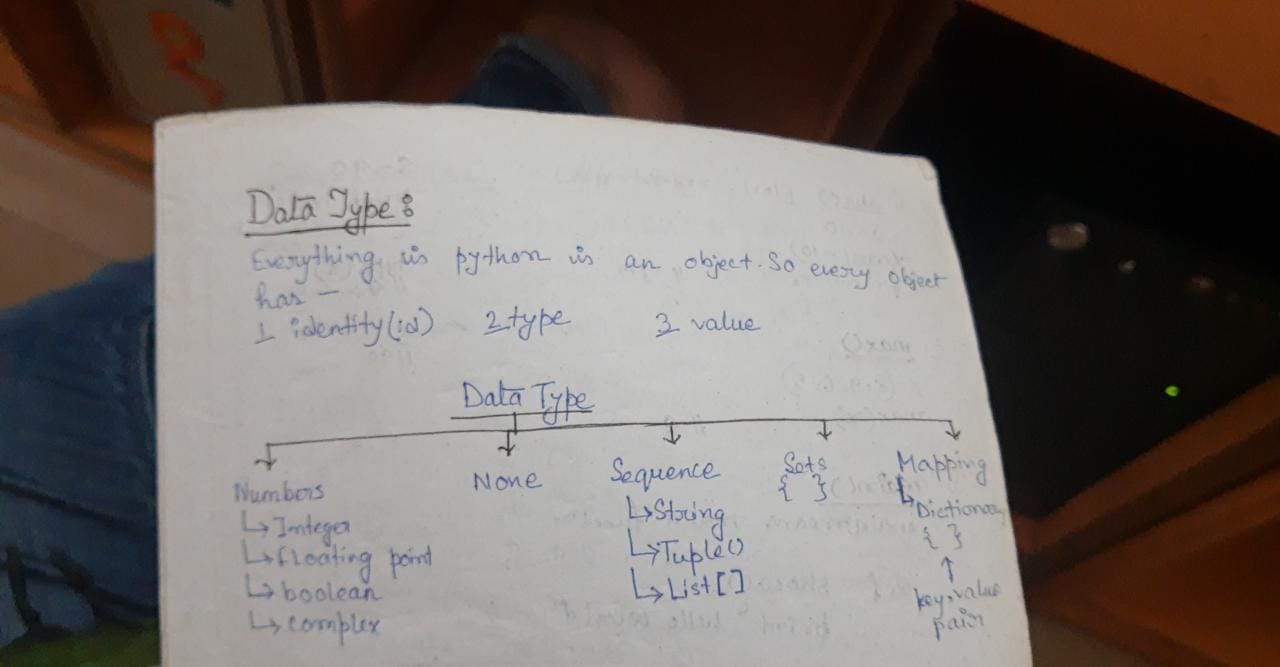 Data Type:
Everything is python is an object. So every object
has —
1 identity(id) 2 type 3 value
Data Type
Numbers
↳ Integer
↳ floating point
↳ boolean
↳ complex
None
Sequence
↳ String
↳ Tuple()
↳ List[]
Sets
{ }
Mapping
↳ Dictionary
{ }
↑
key-value
pair